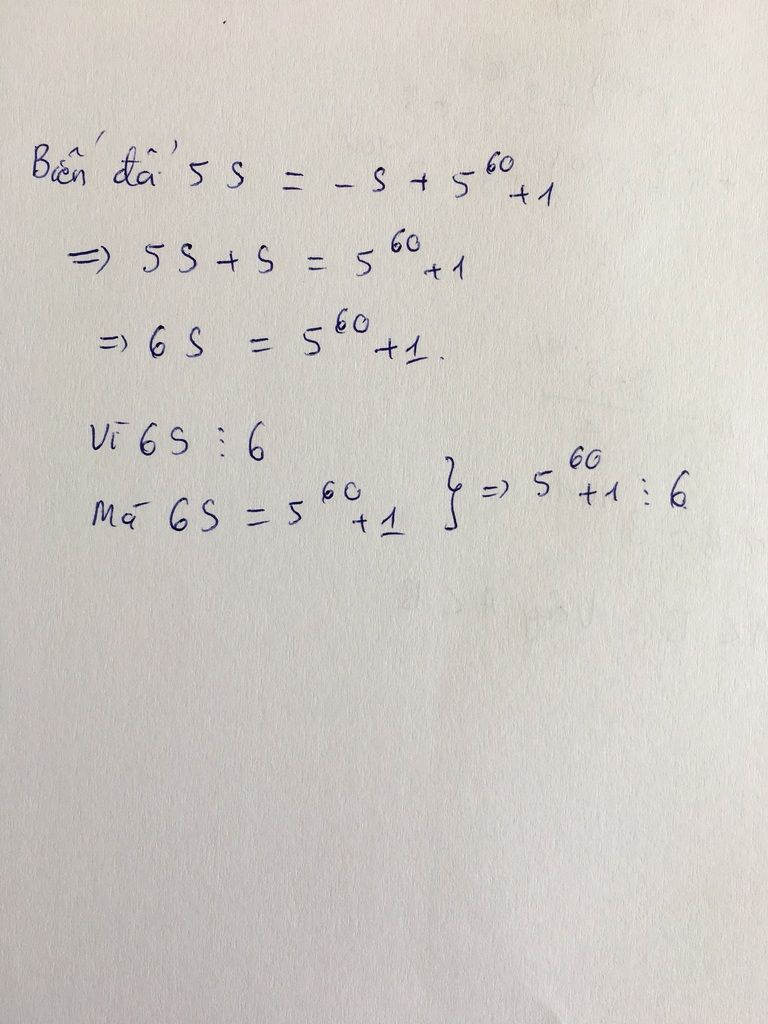 Biến đổi 5S = -S + 5^60 + 1
=> 5S + S = 5^60 + 1
=> 6S = 5^60 + 1.
Vì 6S ⋮ 6
Mà 6S = 5^60 + 1 } => 5^60 + 1 ⋮ 6